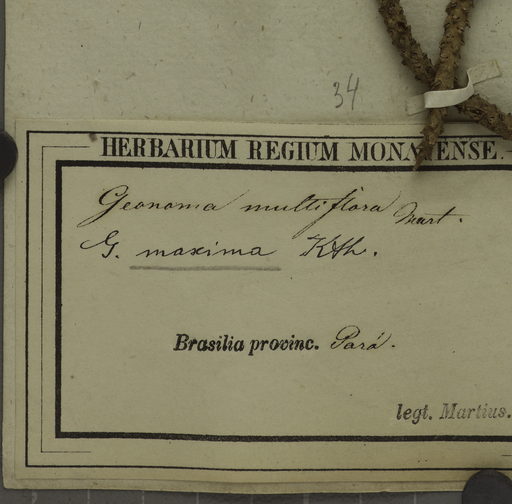 34
HERBARIUM REGIUM MONACENSE.
Geonoma multiflora Mart.
G. maxima Kth.
Brasilia provinc. Pará.
legt. Martius.